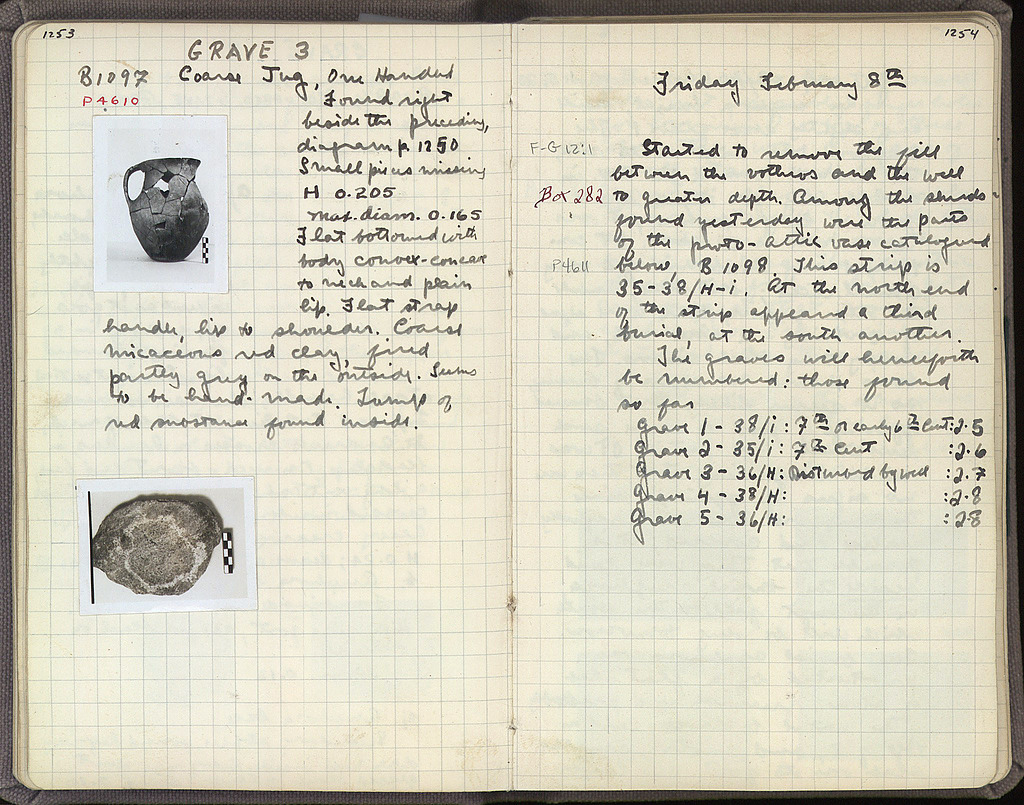 1253
GRAVE 3
B1097 Coarse Jug, One Handled
P4610
Found right
beside the preceding,
diagram p. 1250
Small pieces missing
H 0.205
max. diam. 0.165
Flat bottomed with
body convex-concave
to neck and plain
lip. Flat strap
handle, lip to shoulder. Coarse
micaceous red clay, fired
partly grey on the outside. Seems
to be hand-made. Lump of
red substance found inside.
1254
Friday February 8th
F-G 12:1
Started to remove the fill
between the bothros and the well
Box 282
to greater depth. Among the sherds
found yesterday were the parts
of the proto-Attic vase catalogued
P4611
below, B 1098. This strip is
35-38/H-i. At the north end
of the strip appeared a third
burial, at the south another.
The graves will henceforth
be numbered: those found
so far
Grave 1 - 38/i: 7th or early 6th Cent: 2.5
Grave 2 - 35/i: 7th Cent :2.6
Grave 3 - 36/H: Disturbed by well :2.7
Grave 4 - 38/H: :2.8
Grave 5 - 36/H: :2.8